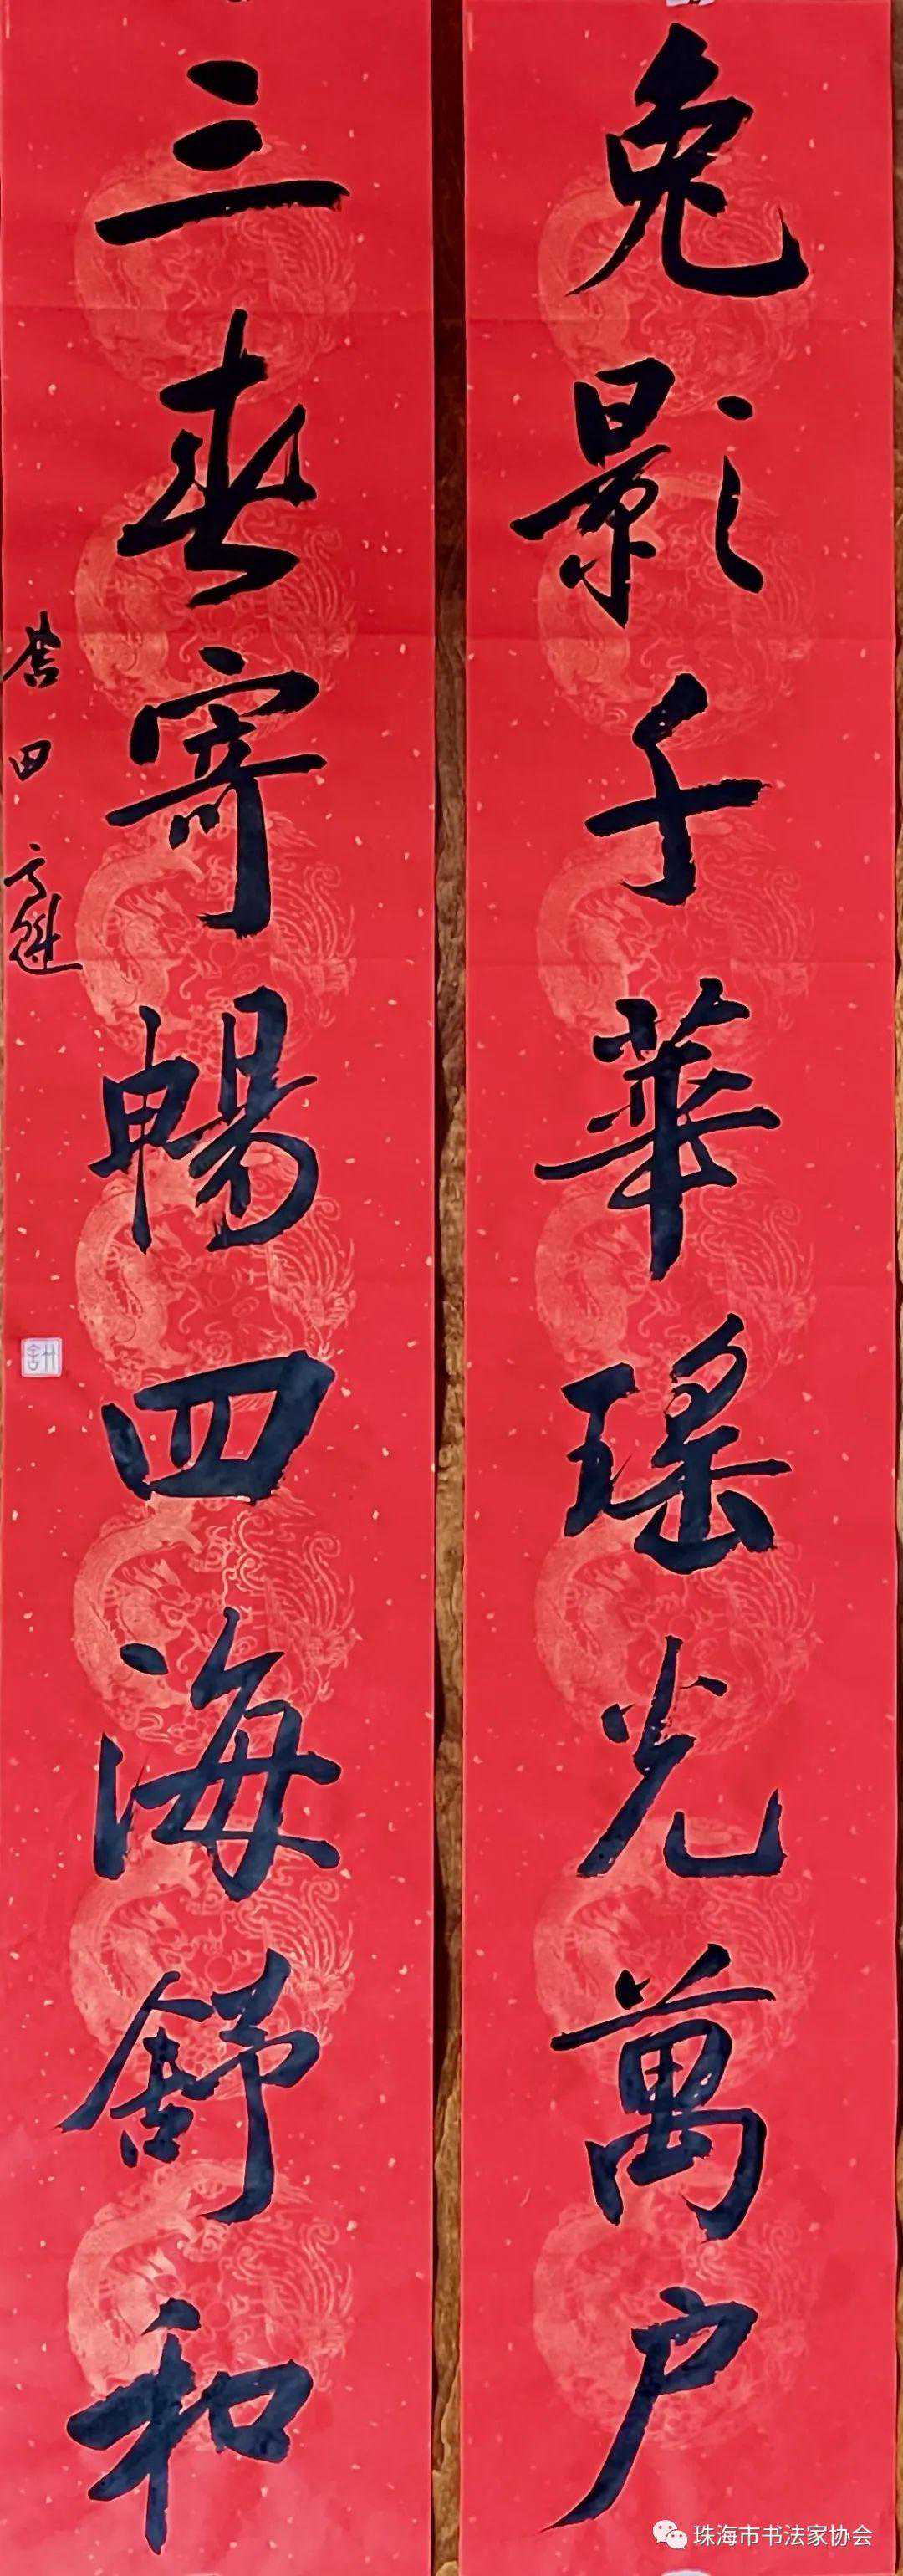 兔影千華瑤光萬户
三春寄暢四海舒和
珠海市书法家协会